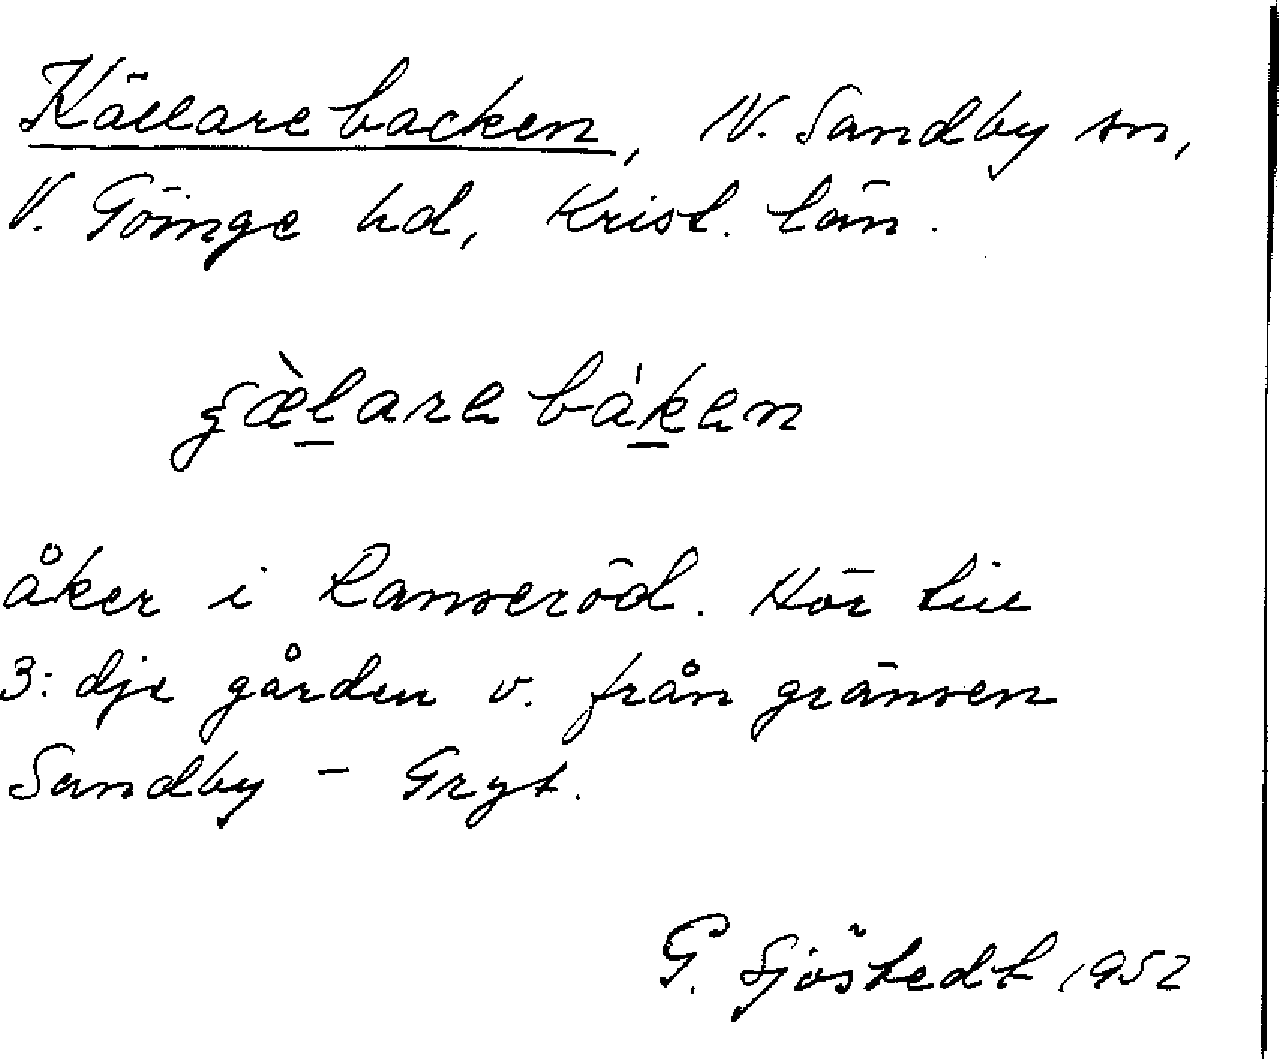 Källarebacken, N. Sandby sn,
V. Göinge hd, Krist. län.
ʂæ̀l̲are bák̲en
åker i Ranseröd. Hör till
3:dje gården v. från gränsen
Sandby - Gryt.
G. Sjöstedt 1952